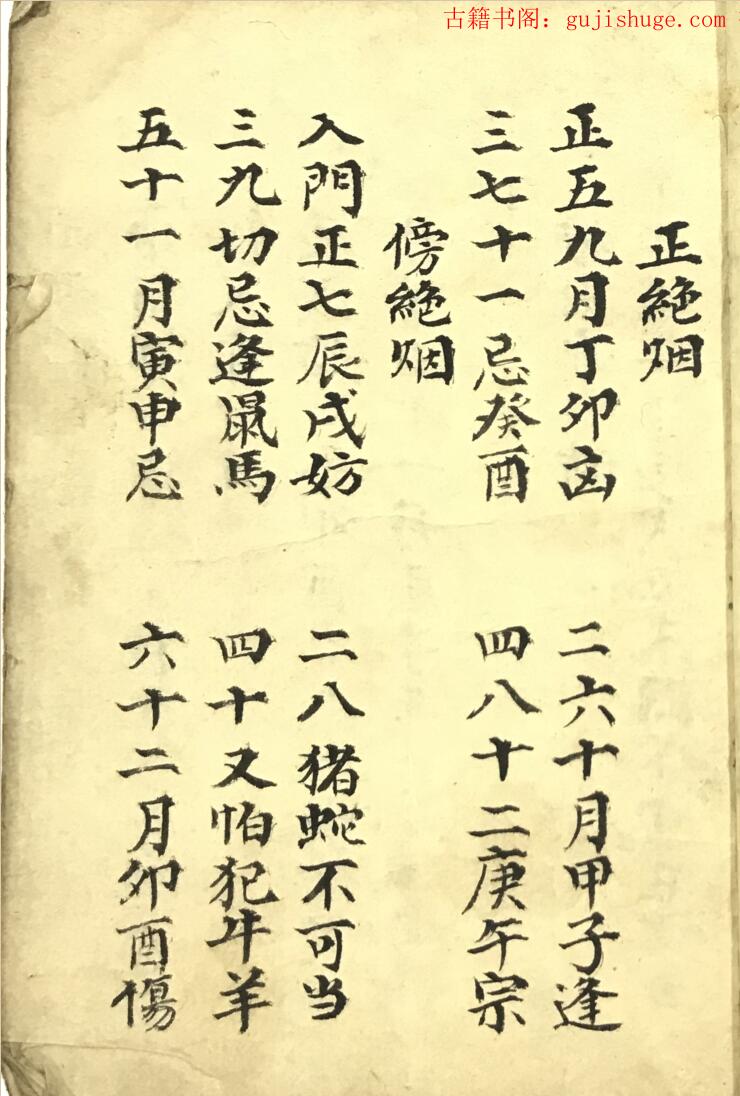 古籍书阁：gujishuge.com
正絶烟
正五九月丁卯凶 二六十月甲子逢
三七十一忌癸酉 四八十二庚午宗
傍絶烟
入門正七辰戌妨 二八猪蛇不可当
三九切忌逢鼠馬 四十又怕犯牛羊
五十一月寅申忌 六十二月卯酉傷